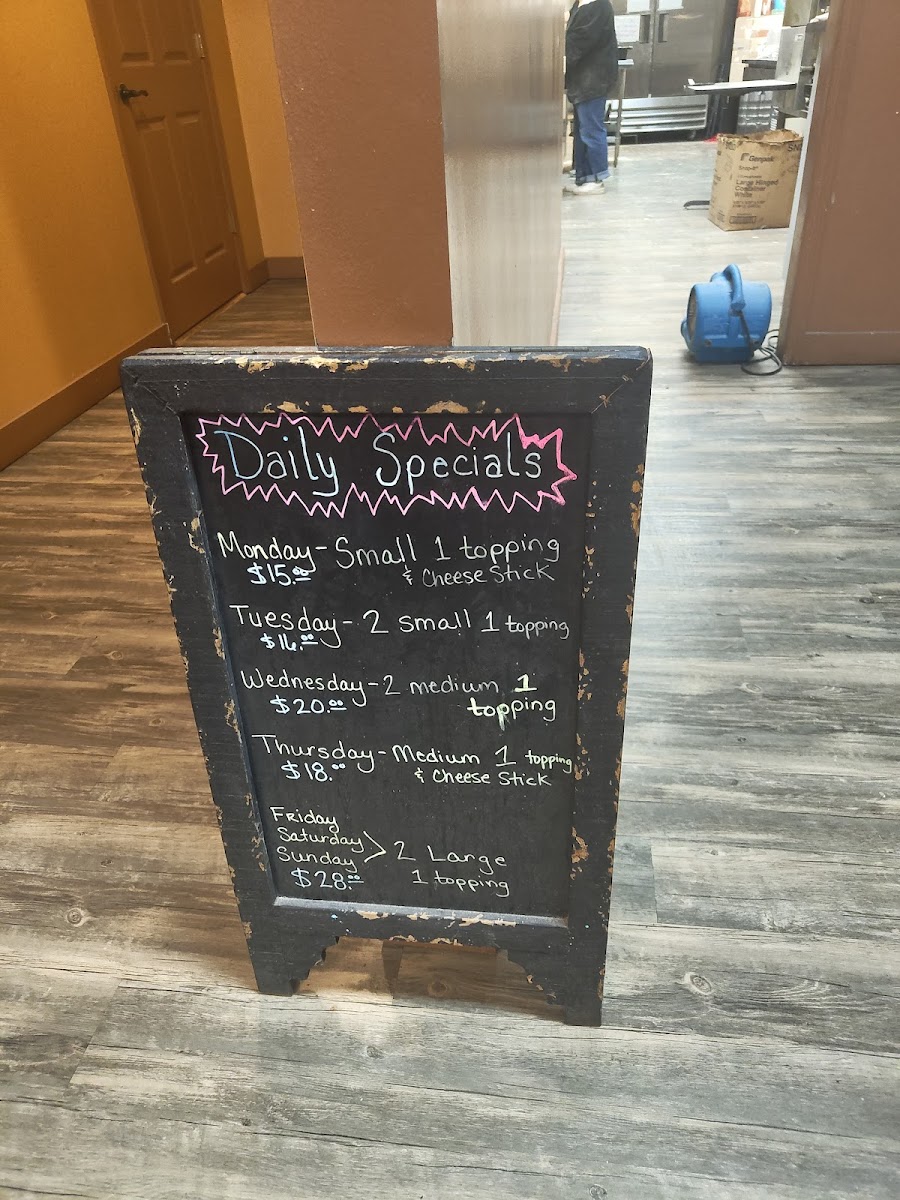 Daily Specials
Monday - Small 1 topping
$15.00 & Cheese Stick
Tuesday - 2 small 1 topping
$16.00
Wednesday - 2 medium 1
$20.00 topping
Thursday - Medium 1 topping
$18.00 & Cheese Stick
Friday
Saturday
Sunday > 2 Large
$28.00 1 topping
Genpak
Large Hinged
Container
White